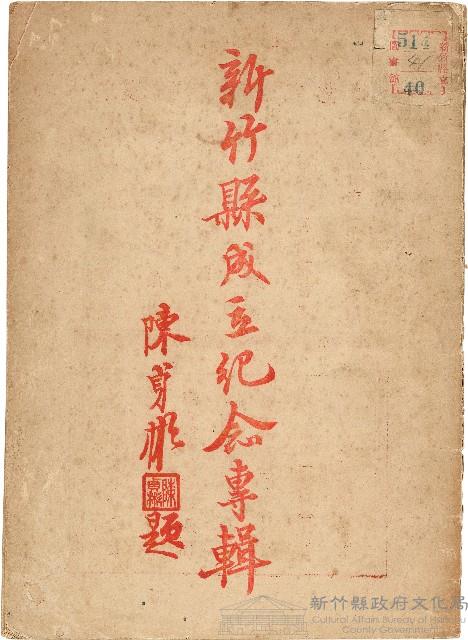 新竹縣成立紀念專輯
陳貞彬
題
514
40
新竹縣政府文化局
Cultural Affairs Bureau of Hsinchu
County Government